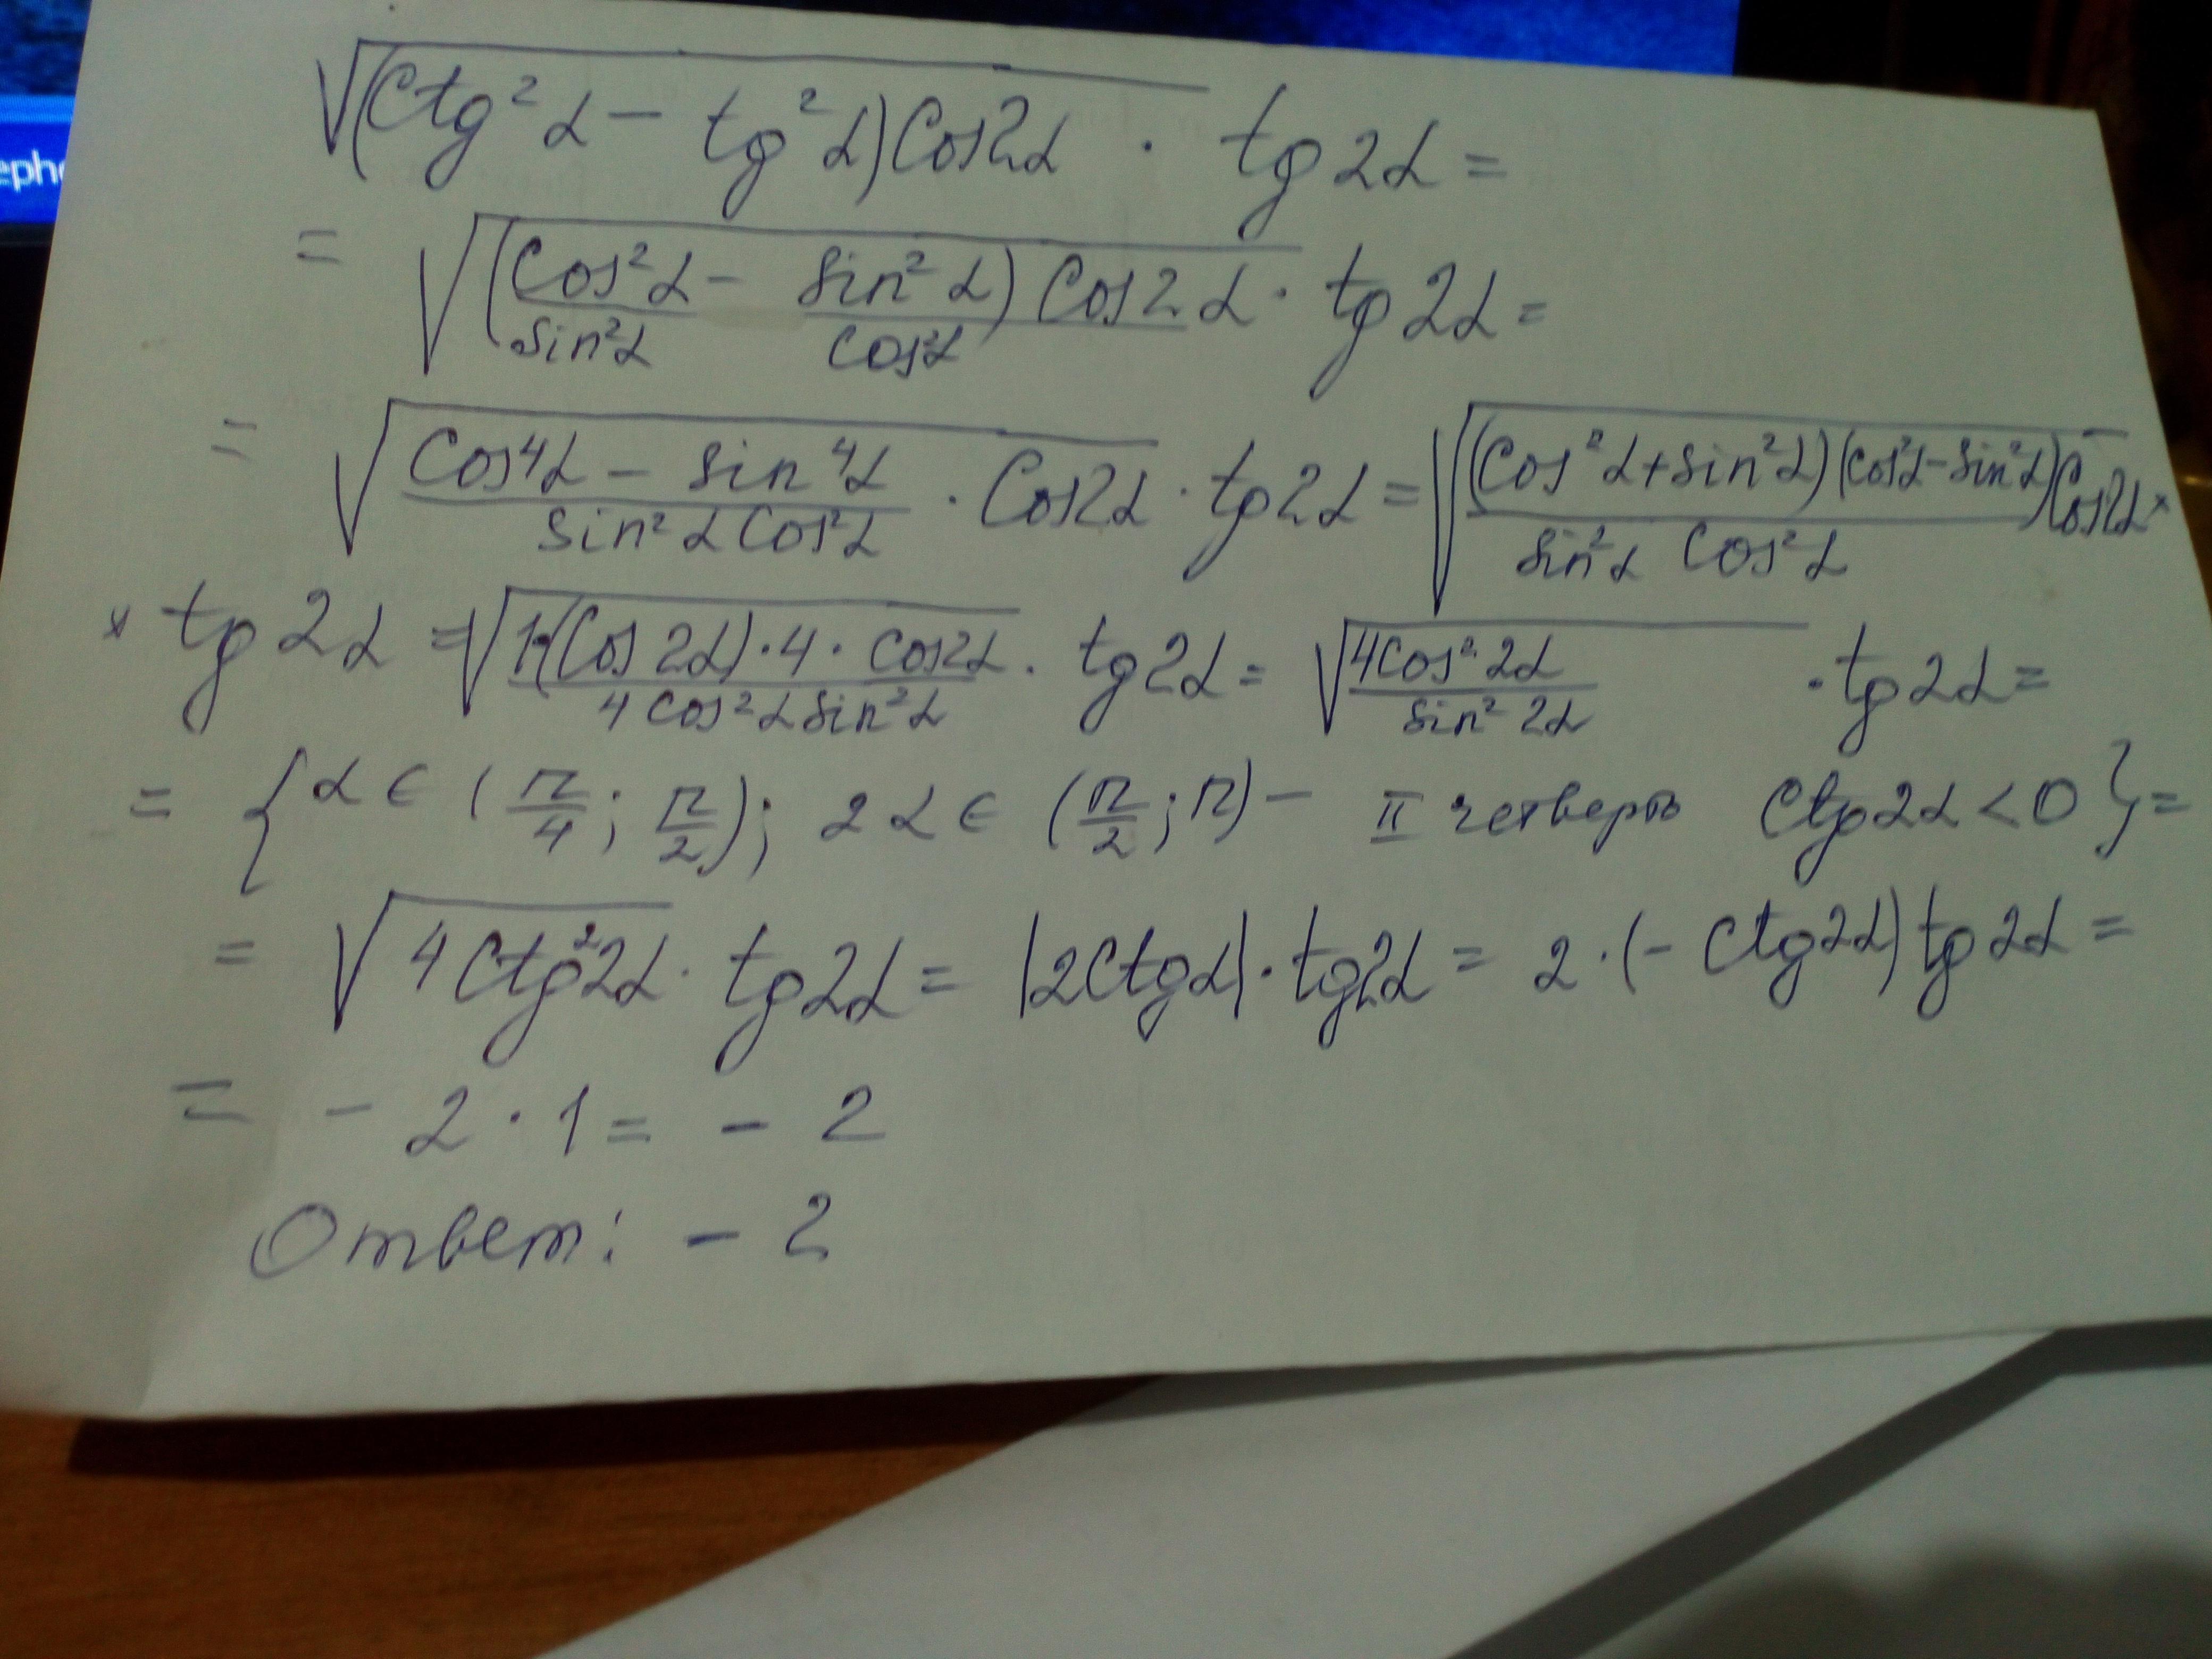 √((Ctg²α − tg²α)Cos2α) · tg2α =
= √((Cos²α/Sin²α − Sin²α/Cos²α) Cos2α) · tg2α =
= √((Cos⁴α − Sin⁴α)/(Sin²α Cos²α) · Cos2α) · tg2α = √((Cos²α + Sin²α)(Cos²α − Sin²α)Cos2α/(Sin²α Cos²α)) ×
× tg2α = √(1·(Cos2α)·4·Cos2α/(4Cos²α Sin²α)) · tg2α = √(4Cos²2α/Sin²2α) · tg2α =
= {α ∈ (π/4; π/2); 2α ∈ (π/2; π) − II четверть Ctg2α < 0} =
= √(4Ctg²2α) · tg2α = |2Ctgα| · tg2α = 2·(−Ctg2α) tg2α =
= − 2 · 1 = − 2
Ответ: − 2